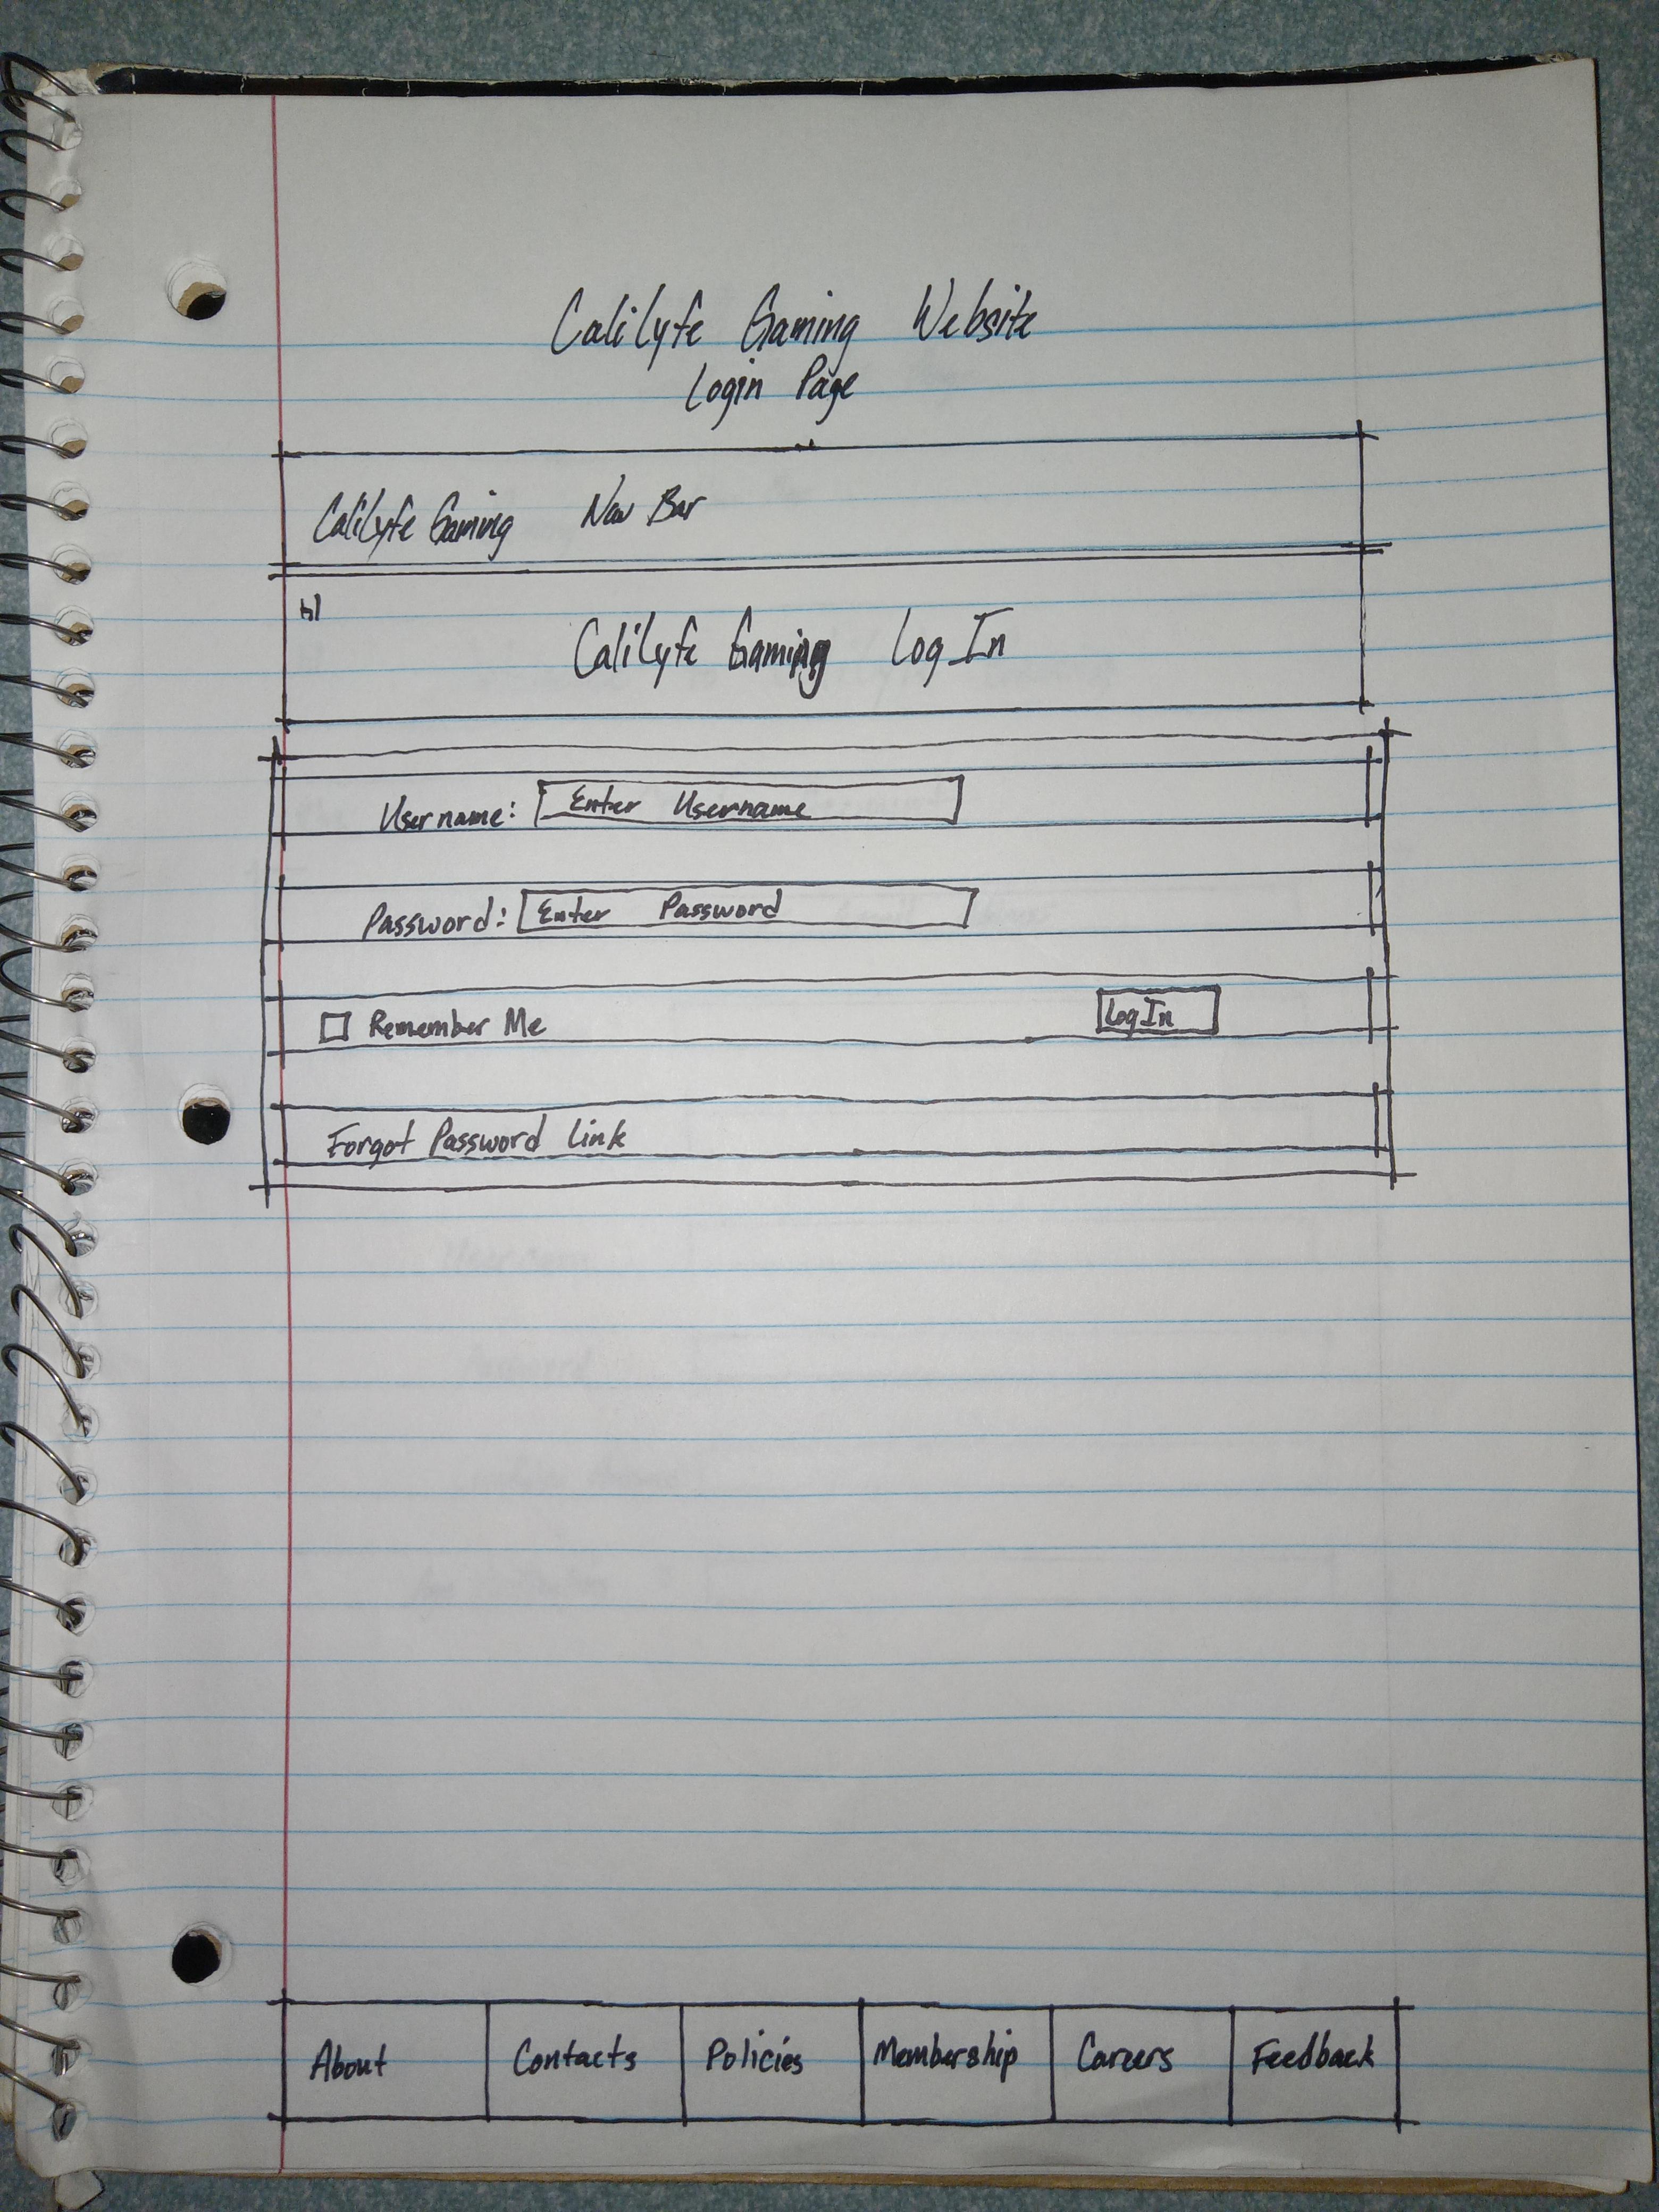 CaliLyfe Gaming Website
Login Page
CaliLyfe Gaming Nav Bar
h1
CaliLyfe Gaming Log In
Username: Enter Username
Password: Enter Password
Remember Me Log In
Forgot Password Link
About Contacts Policies Membership Careers Feedback